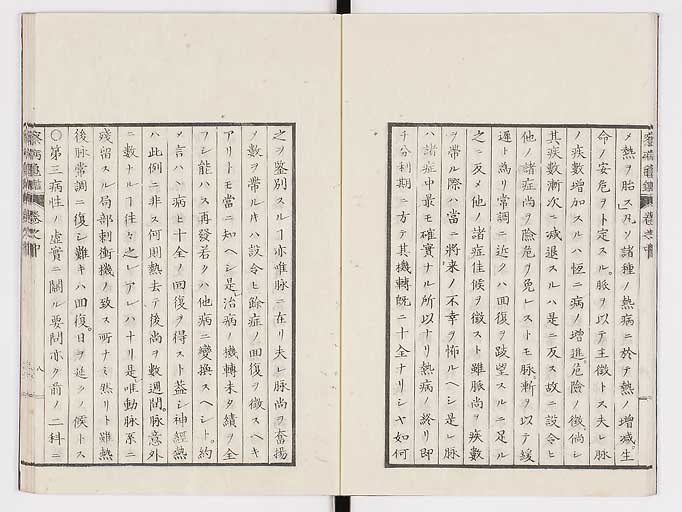 メ熱ヲ胎ス」凡ソ諸種ノ熱病ニ於テ熱ノ增減。生
命ノ安危ヲト定スル。脈ヲ以テ主徵トス夫レ脈
ノ疾數增加スルハ恒ニ病ノ增進。危險ノ徵。倘シ
其疾數漸次ニ減退スルハ是ニ反ス故ニ設令ヒ
他ノ諸症尚ヲ險危ヲ免レストモ脈漸ヲ以テ緩
遲ト爲リ常調ニ近ク八回復ヲ跂望スルニ足ル
之ニ反メ他ノ諸症佳候ヲ徵スト雖脈尚ヲ疾數
ヲ帶ル際ハ當ニ將來ノ不幸ヲ怖ルヘシ是レ脈
ハ諸症中最モ確實ナル所以ナリ熱病ノ終リ即
チ分利期ニ方テ其機轉旣ニ十全ナリシヤ如何
之ヲ鑒別スルヿ亦唯脈ニ在リ夫レ脈尚ヲ奮揚
ノ數ヲ帶ル片ハ設令ヒ餘症ノ回復ヲ徵スヘキ
アリトモ當ニ知ヘシ是。治病ノ機轉未タ績ヲ全
フシ能ハス再發若クハ他病ニ變換スヘシト。約
メ言ハヽ病ヒ十全ノ回復ヲ得スト蓋シ神經熱
ハ此例ニ非ス何則熱去テ後尚ヲ數週間。脈意外
ニ數ナルヿ往々之レアレハナリ是。唯動脈系ニ
殘留スル局部刺衝機ノ致ス所ナミ然リト雖熱
後脈常調ニ復シ難キハ回復。日ヲ延クノ候トス
〇第三病性ノ虛實ニ關ル要問亦ク前ノ二科ニ
卷之中
八